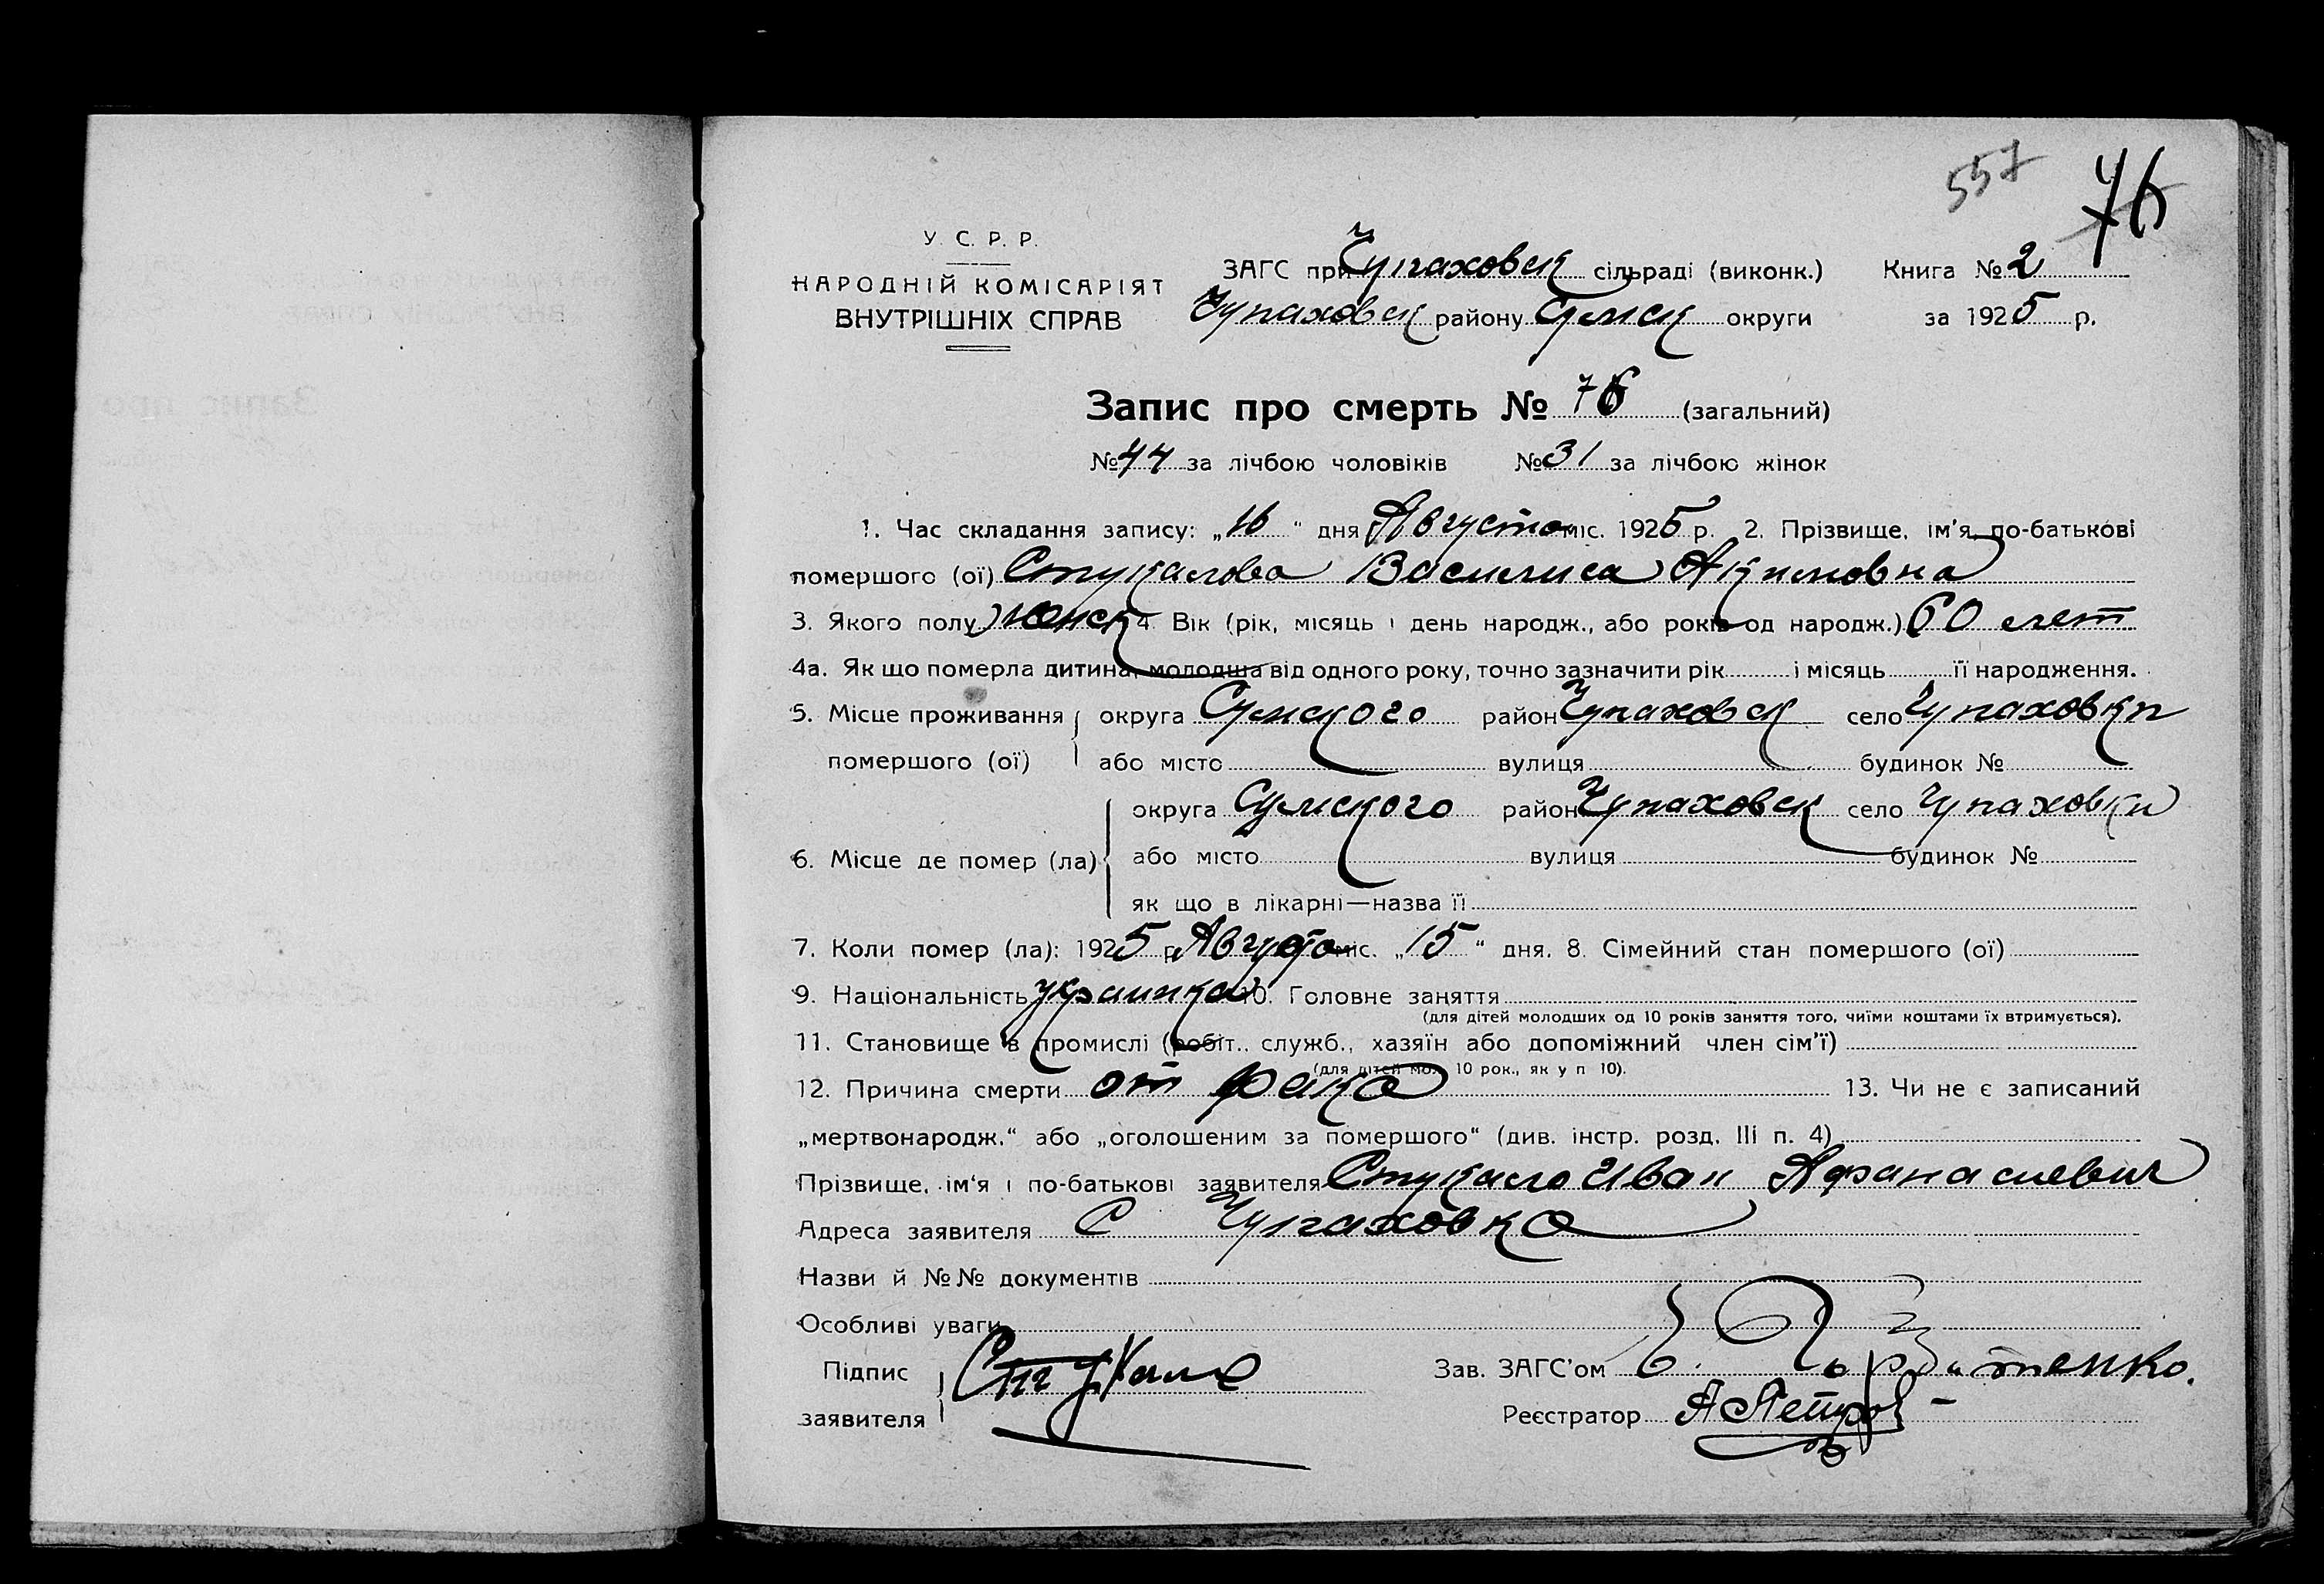 557 76
У. С. Р. Р.
НАРОДНІЙ КОМІСАРІЯТ
ВНУТРІШНІХ СПРАВ
ЗАГС при Чупаховск сільраді (виконк.) Книга № 2
Чупаховск району Сумск округи за 1925 р.
Запис про смерть № 76 (загальний)
№ 44 за лічбою чоловіків № 31 за лічбою жінок
1. Час складання запису: „16“ дня Августа міс. 1925 р. 2. Прізвище, ім'я, по-батькові
помершого (ої) Стукалова Василиса Акимовна
3. Якого полу женск 4. Вік (рік, місяць і день народж., або років од народж.) 60 лет
4а. Як що померла дитина, молодша від одного року, точно зазначити рік і місяць її народження.
5. Місце проживання округа Сумского район Чупаховск село Чупаховки
помершого (ої) або місто вулиця будинок №
округа Сумского район Чупаховск село Чупаховки
6. Місце де помер (ла) або місто вулиця будинок №
як що в лікарні—назва її
7. Коли помер (ла): 1925 р. Августа міс. „15“ дня. 8. Сімейний стан помершого (ої)
9. Національність украинка 10. Головне заняття
(для дітей молодших од 10 років заняття того, чиїми коштами їх втримується).
11. Становище в промислі (робіт., служб., хазяїн або допоміжний член сім'ї)
(для дітей мол. 10 рок., як у п 10).
12. Причина смерти от рака 13. Чи не є записаний
„мертвонародж.“ або „оголошеним за помершого“ (див. інстр. розд. III п. 4)
Прізвище, ім'я і по-батькові заявителя Стукало Иван Афанасиевич
Адреса заявителя С Чупаховка
Назви й №№ документів
Особливі уваги
Підпис заявителя Стукало
Зав. ЗАГС'ом
Реєстратор А Петров